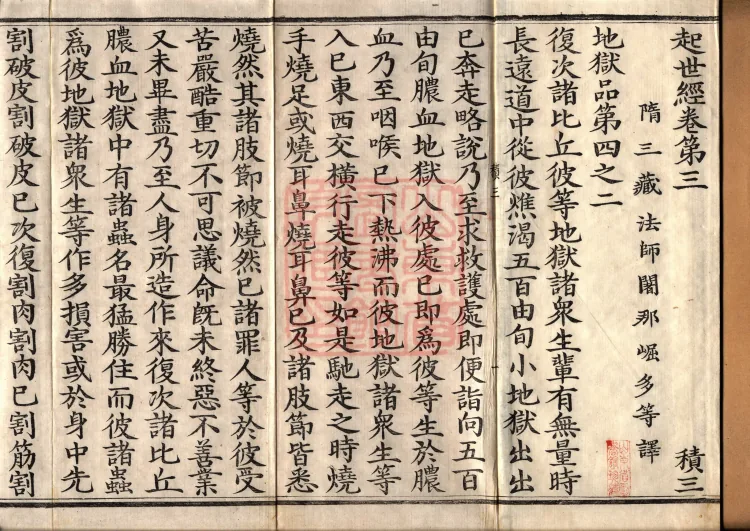 起世經卷第三 積三
隋三藏法師闍那崛多等譯
地獄品第四之二
復次諸比丘彼等地獄諸衆生輩有無量時
長遠道中從彼燋渴五百由旬小地獄出出
已奔走略說乃至求救護處即便詣向五百
積三
由旬膿血地獄入彼處已即爲彼等生於膿
血乃至咽喉已下熱沸而彼地獄諸衆生等
入已東西交橫行走彼等如是馳走之時燒
手燒足或燒耳鼻燒耳鼻已及諸肢節皆悉
燒然其諸肢節被燒然已諸罪人等於彼受
苦嚴酷重切不可思議命旣未終惡不善業
又未畢盡乃至人身所造作來復次諸比丘
膿血地獄中有諸蟲名最猛勝住而彼諸蟲
爲彼地獄諸衆生等作多損害或於身中先
割破皮割破皮已次復割肉割肉已割筋割